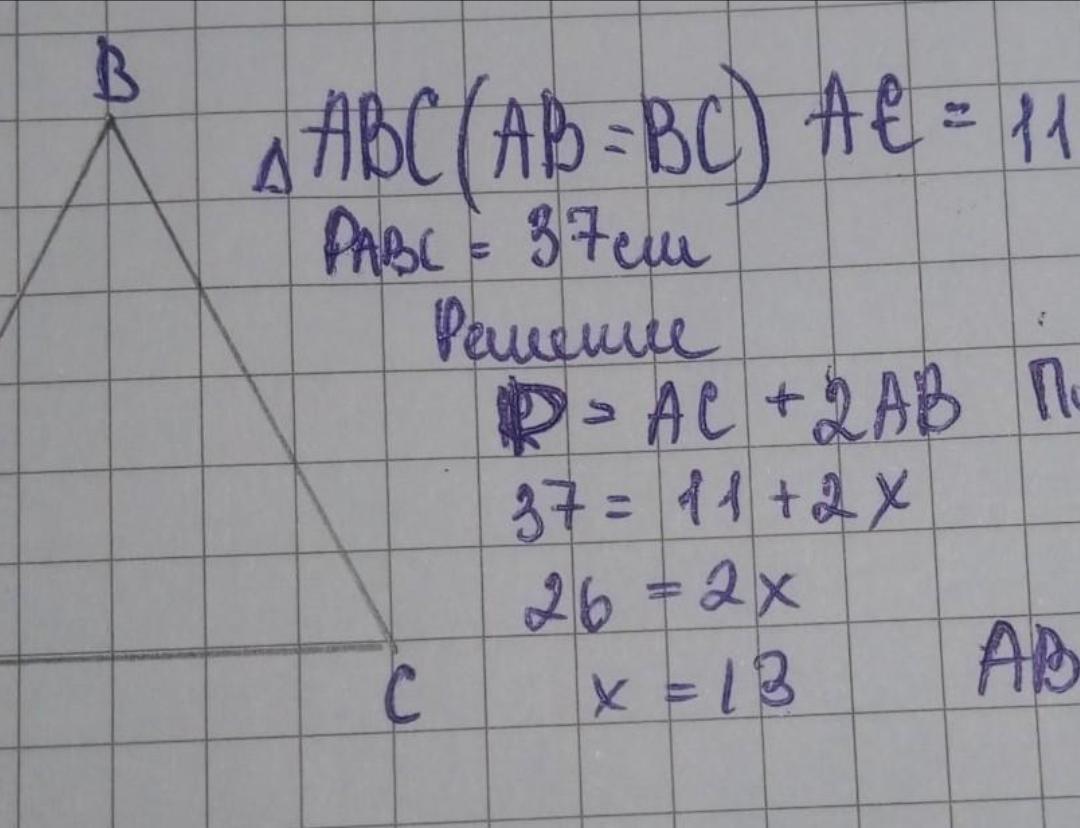 B
△ABC(AB=BC) AC = 11
PABC = 37см
Решение
P = AC + 2AB
37 = 11 + 2x
26 = 2x
x = 13 AB
C